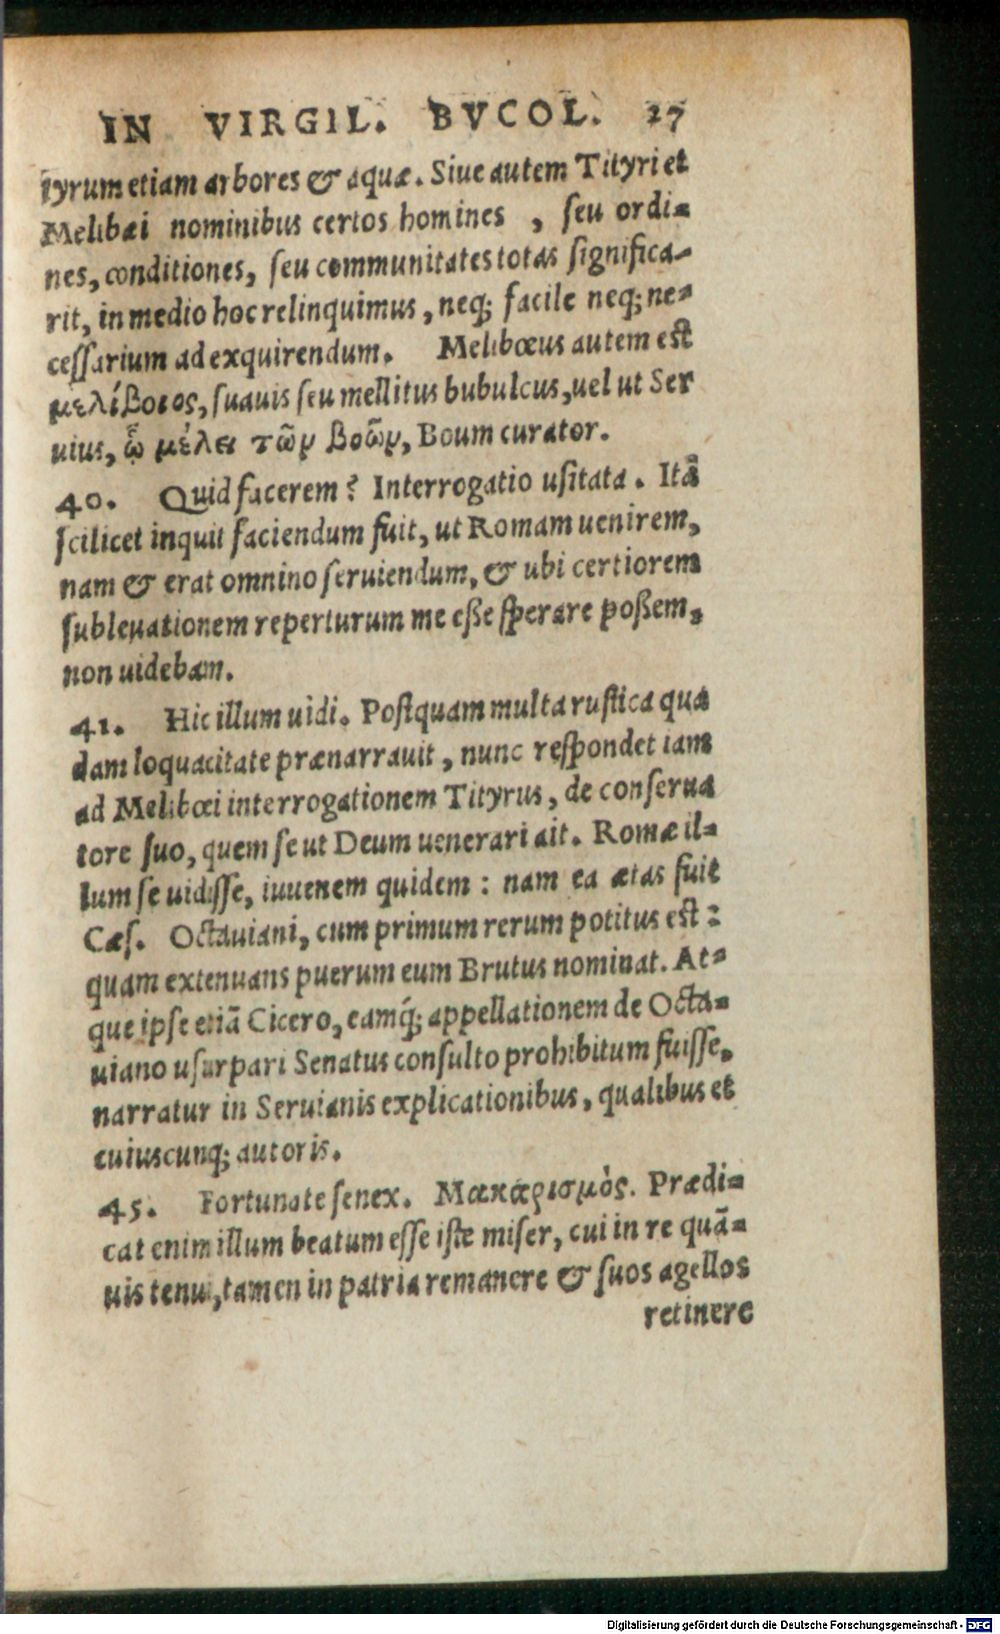 IN VIRGIL. BVCOL. 27
tyrum etiam arbores & aquæ. Siue autem Tityri et
Melibæi nominibus certos homines , seu ordi-
nes, conditiones, seu communitates totas significa-
rit, in medio hoc relinquimus, neq; facile neq; ne-
cessarium ad exquirendum. Melibœus autem est
μελίβοιος, suauis seu mellitus bubulcus, uel ut Ser
uius, ᾧ μέλει τῶν βοῶν, Boum curator.
40. Quid facerem? Interrogatio usitata. Itā
scilicet inquit faciendum fuit, ut Romam uenirem,
nam & erat omnino seruiendum, & ubi certiorem
subleuationem reperturum me eße sperare poßem,
non uidebam.
41. Hic illum uidi. Postquam multa rustica qua
dam loquacitate prænarrauit, nunc respondet iam
ad Melibœi interrogationem Tityrus, de conserua
tore suo, quem se ut Deum uenerari ait. Romæ il-
lum se uidisse, iuuenem quidem: nam ea ætas fuit
Cæs. Octauiani, cum primum rerum potitus est:
quam extenuans puerum eum Brutus nominat. At-
que ipse etiā Cicero, eamq́; appellationem de Octa-
uiano usurpari Senatus consulto prohibitum fuisse,
narratur in Seruianis explicationibus, qualibus et
cuiuscunq; autoris.
45. Fortunate senex. Μακαρισμὸς. Prædi-
cat enim illum beatum esse iste miser, cui in re quā-
uis tenui, tamen in patria remanere & suos agellos
retinere
Digitalisierung gefördert durch die Deutsche Forschungsgemeinschaft - DFG